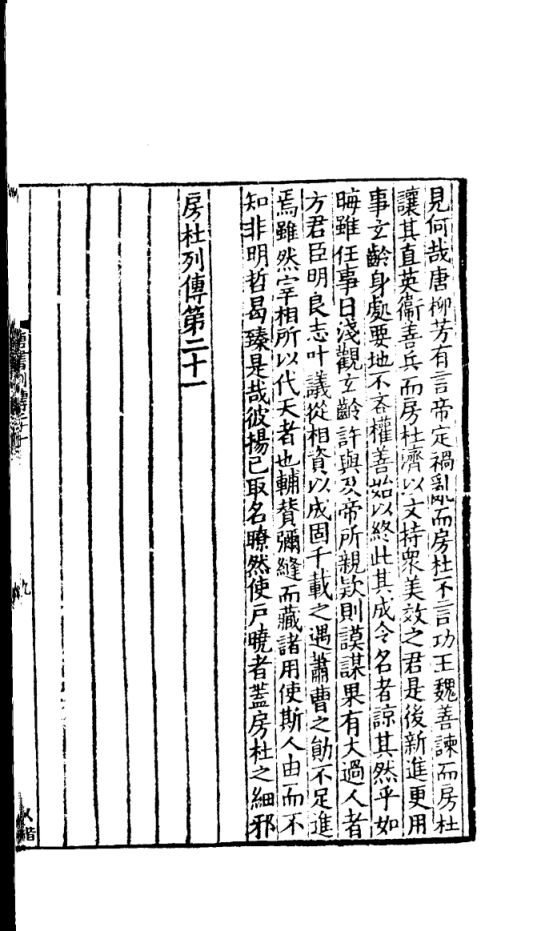 見何哉唐柳芳有言帝定禍亂而房杜不言功王魏善諫而房杜
讓其直英衞善兵而房杜濟以文持衆美效之君是後新進更用
事玄齡身處要地不吝權善始以終此其成令名者諒其然乎如
晦雖任事日淺觀玄齡許與及帝所親欵則謨謀果有大過人者
方君臣明良志叶議從相資以成固千載之遇蕭曹之勛不足進
焉雖然宰相所以代天者也輔贊彌縫而藏諸用使斯人由而不
知非明哲曷臻是哉彼揚己取名瞭然使戶曉者蓋房杜之細邪
房杜列傳第二十一
九